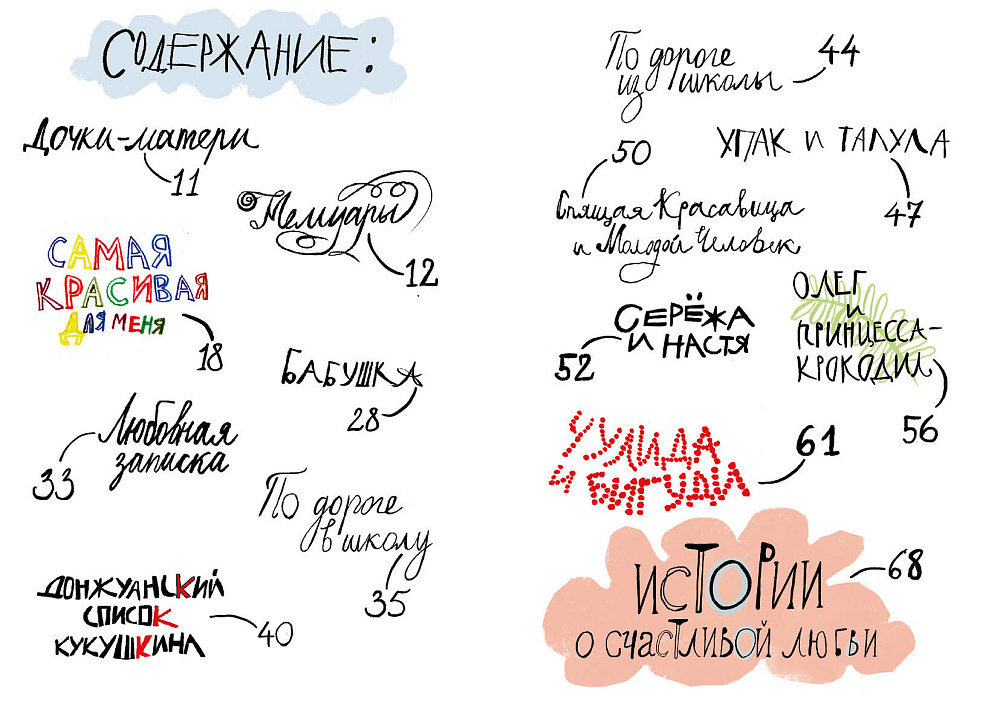 СОДЕРЖАНИЕ:
Дочки-матери
11
Мемуары
12
САМАЯ
КРАСИВАЯ
ДЛЯ МЕНЯ
18
БАБУШКА
28
Любовная
записка
33
По дороге
в школу
35
ДОНЖУАНСКИЙ
СПИСОК
КУКУШКИНА
40
По дороге
из школы
44
УПАК И ТАЛУЛА
47
50
Спящая Красавица
и Молодой Человек
СЕРЁЖА
И НАСТЯ
52
ОЛЕГ
И
ПРИНЦЕССА-
КРОКОДИЛ
56
УУЛИДА
И БИГУДА
61
ИСТОРИИ
О СЧАСТЛИВОЙ ЛЮБВИ
68